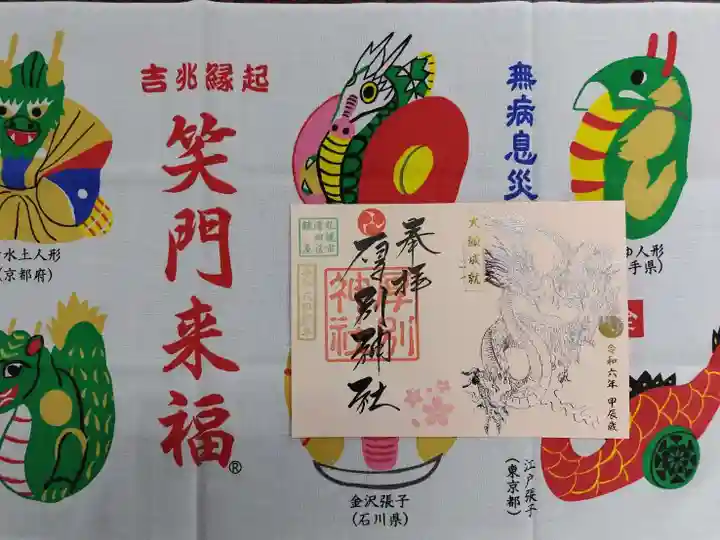 吉兆縁起
笑門来福®
無病息災
水土人形
(京都府)
人形
手県)
奉拝
厚別神社
厚別
神社
大願成就
令和六年 甲辰歳
金沢張子
(石川県)
江戸張子
(東京都)